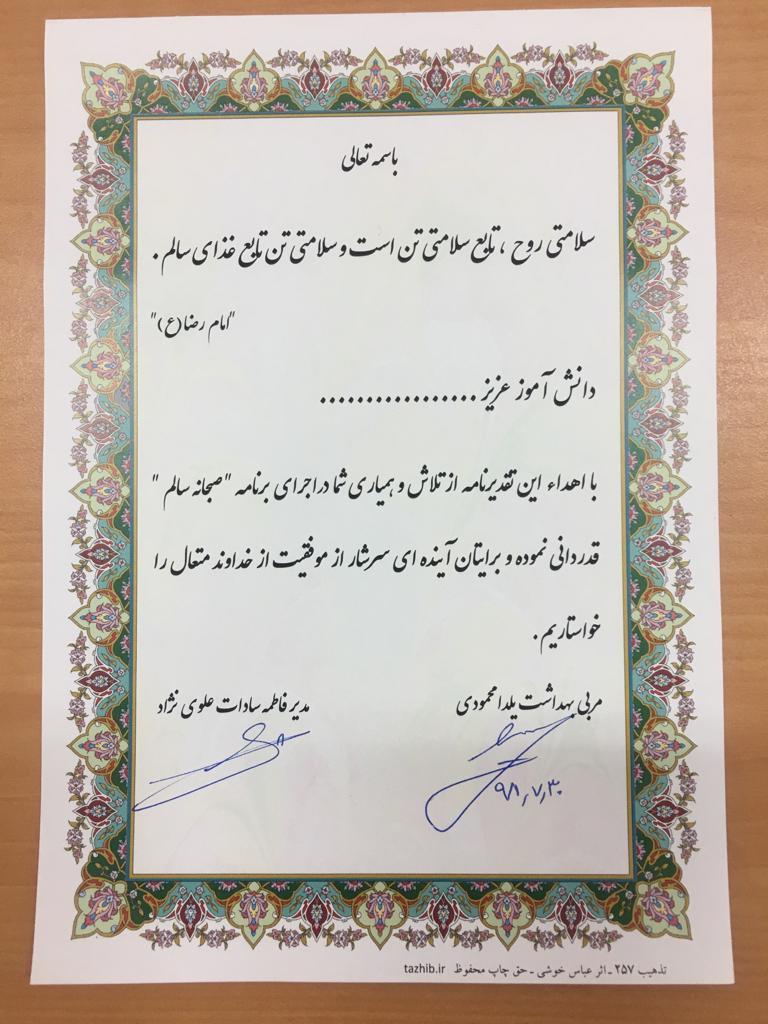 باسمه تعالی
سلامتی روح ، تابع سلامتی تن است و سلامتی تن تابع غذای سالم .
"امام رضا(ع)"
دانش آموز عزیز .................
با اهداء این تقدیرنامه از تلاش و همیاری شما در اجرای برنامه "صبحانه سالم "
قدردانی نموده و برایتان آینده ای سرشار از موفقیت از خداوند متعال را
خواستاریم .
مربی بهداشت یلدا محمودی مدیر فاطمه سادات علوی نژاد
۹۸,۷,۳۰
تذهیب ۲۵۷ ـ اثر عباس خوشی ـ حق چاپ محفوظ tazhib.ir